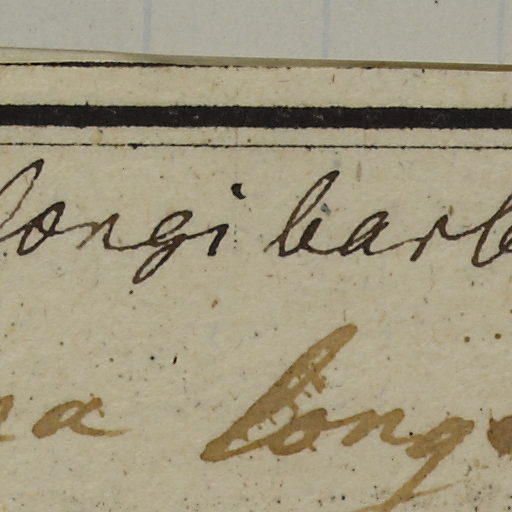 longi barb
na longe